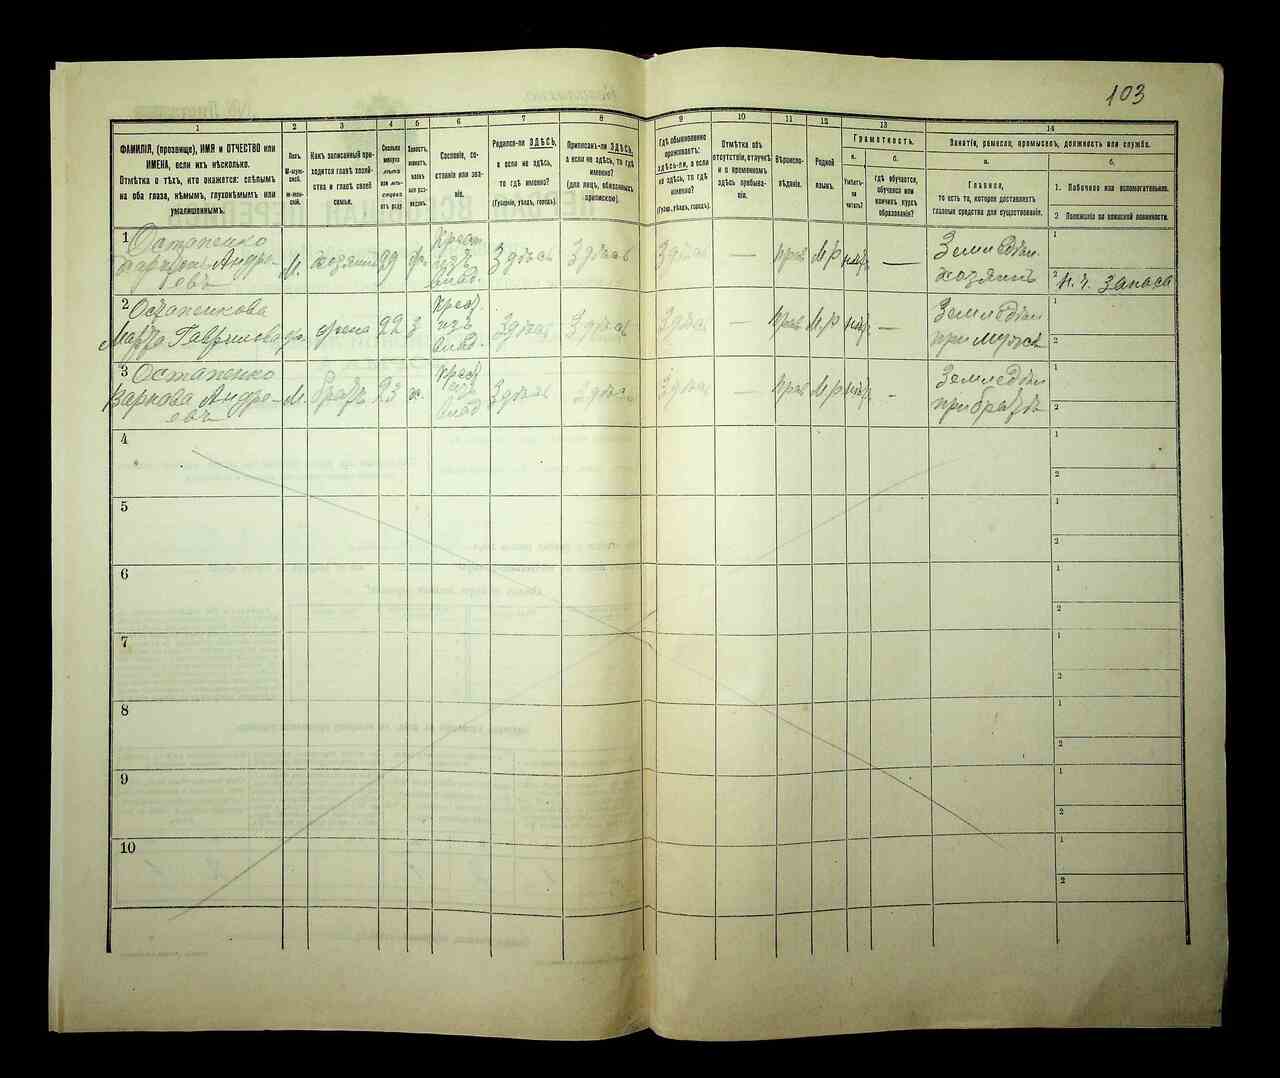 103
1
2
3
4
5
6
7
8
9
10
11
12
13
14
ФАМИЛІЯ, (прозвище), ИМЯ и ОТЧЕСТВО или
ИМЕНА, если ихъ нѣсколько.
Отмѣтка о тѣхъ, кто окажется: слѣпымъ
на оба глаза, нѣмымъ, глухонѣмымъ или
умалишеннымъ.
Полъ.
Какъ записанный при-
ходится главѣ хозяй-
ства и главѣ своей
семьи.
Сколько
Сословіе, со-
стояніе или зва-
ніе.
Родился-ли ЗДѢСЬ,
а если не здѣсь,
то гдѣ именно?
(Губернія, уѣздъ, городъ).
Приписанъ-ли ЗДѢСЬ,
а если не здѣсь, то гдѣ
именно?
(для лицъ, обязанныхъ
припискою).
Гдѣ обыкновенно
проживаетъ:
здѣсь-ли, а если
не здѣсь, то гдѣ
именно?
(Губер., уѣздъ, городъ).
Отмѣтка объ
отсутствіи, отлучкѣ
и о временномъ
здѣсь пребыва-
ніи.
Вѣроиспо-
вѣданіе.
Родной
языкъ.
Грамотность.
а.
б.
Умѣетъ-
ли
читать?
гдѣ обучается,
обучался или
кончилъ курсъ
образованія?
Занятіе, ремесло, промыселъ, должность или служба.
а.
б.
Главное,
то есть то, которое доставляетъ
главныя средства для существованія.
1. Побочное или вспомогательное.
2 Положеніе по воинской повинности.
1
Остапенко
Андре-
евъ
М.
хозяинъ
29
Крест
изъ
влад.
Здѣсь
Здѣсь
Здѣсь
—
прав
М.р
—
Земледѣл.
хозяинъ
1
2
н. ч. запаса
2
Остапенкова
Марѳа Гаврилова
жена
22
з
Крест.
изъ
влад.
Здѣсь
Здѣсь
Здѣсь
—
прав
М.р
—
Земледѣл
при мужѣ
1
2
3
Остапенко
Андре-
евъ
М.
братъ
23
х.
Крест
изъ
влад
Здѣсь
Здѣсь
Здѣсь
—
прав
М.р
-
Земледѣл
при братѣ
1
2
4
1
2
5
1
2
6
1
2
7
1
2
8
1
2
9
1
2
10
1
2